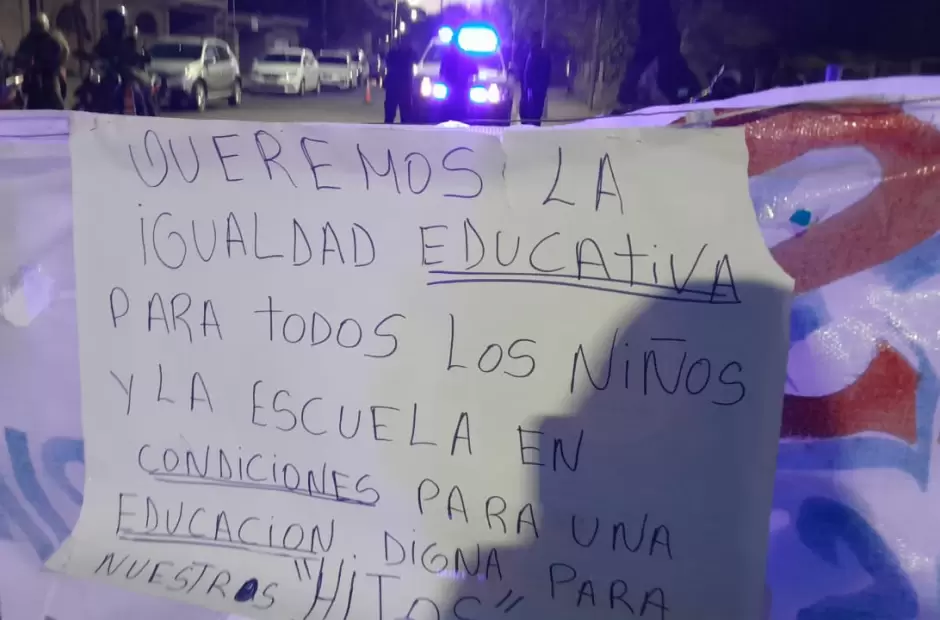 QUEREMOS LA
iGUALDAD EDUCAtiVA
PARA tODOS LOS NiÑOS
Y LA ESCUELA EN
CONDICIONES PARA UNA
EDUCACION. DIGNA PARA
NUESTROS "HIJOS"